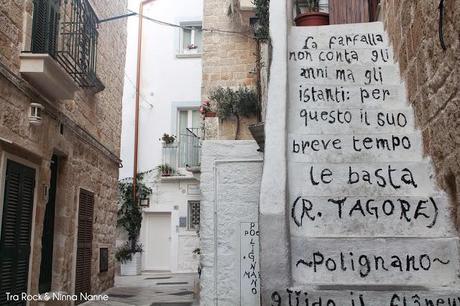 la farfalla
non conta gli
anni ma gli
istanti: per
questo il suo
breve tempo
le basta
(R. TAGORE)
~Polignano~
guido il flâneur
POLIGNANO